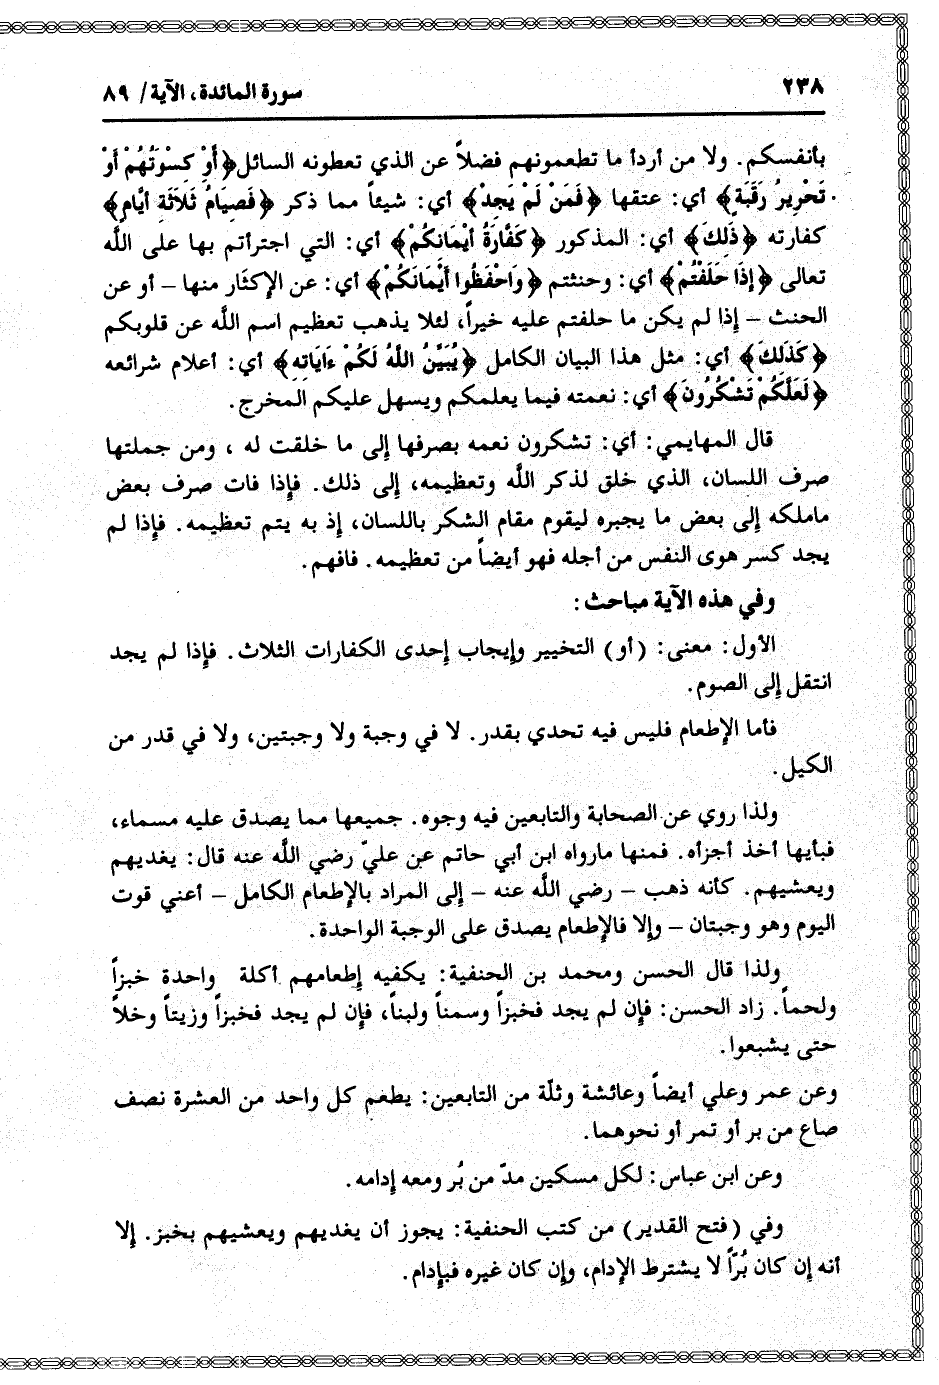 ٢٣٨
سورة المائدة، الآية/ ٨٩
بأنفسكم. ولا من أردأ ما تطعمونهم فضلاً عن الذي تعطونه السائل ﴿أَوْ كِسْوَتُهُمْ أَوْ
تَحْرِيرُ رَقَبَةٍ﴾ أي: عتقها ﴿فَمَنْ لَمْ يَجِدْ﴾ أي: شيئاً مما ذكر ﴿فَصِيَامُ ثَلاَثَةِ أَيَّامٍ﴾
كفارته ﴿ذَلِكَ﴾ أي: المذكور ﴿كَفَّارَةُ أَيْمَانِكُمْ﴾ أي: التي اجترأتم بها على اللَّه
تعالى ﴿إِذَا حَلَفْتُمْ﴾ أي: وحنثتم ﴿وَاحْفَظُوا أَيْمَانَكُمْ﴾ أي: عن الإكثار منها – أو عن
الحنث – إذا لم يكن ما حلفتم عليه خيراً، لئلا يذهب تعظيم اسم اللَّه عن قلوبكم
﴿كَذَلِكَ﴾ أي: مثل هذا البيان الكامل ﴿يُبَيِّنُ اللَّهُ لَكُمْ ءَايَاتِهِ﴾ أي: أعلام شرائعه
﴿لَعَلَّكُمْ تَشْكُرُونَ﴾ أي: نعمته فيما يعلمكم ويسهل عليكم المخرج.
قال المهايمي: أي: تشكرون نعمه بصرفها إلى ما خلقت له ، ومن جملتها
صرف اللسان، الذي خلق لذكر اللَّه وتعظيمه، إلى ذلك. فإذا فات صرف بعض
ماملكه إلى بعض ما يجبره ليقوم مقام الشكر باللسان، إذ به يتم تعظيمه. فإذا لم
يجد كسر هوى النفس من أجله فهو أيضاً من تعظيمه. فافهم.
وفي هذه الآية مباحث:
الأول: معنى: (أو) التخيير وإيجاب إحدى الكفارات الثلاث. فإذا لم يجد
انتقل إلى الصوم.
فأما الإطعام فليس فيه تحدي بقدر. لا في وجبة ولا وجبتين، ولا في قدر من
الكيل.
ولذا روي عن الصحابة والتابعين فيه وجوه. جميعها مما يصدق عليه مسماء،
فبأيها أخذ أجزأه. فمنها مارواه ابن أبي حاتم عن عليّ رضي اللَّه عنه قال: يغديهم
ويعشيهم. كأنه ذهب – رضي اللَّه عنه – إلى المراد بالإطعام الكامل – أعني قوت
اليوم وهو وجبتان – وإلا فالإطعام يصدق على الوجبة الواحدة.
ولذا قال الحسن ومحمد بن الحنفية: يكفيه إطعامهم أكلة واحدة خبزاً
ولحماً. زاد الحسن: فإن لم يجد فخبزاً وسمناً ولبناً، فإن لم يجد فخبزاً وزيتاً وخلاً
حتى يشبعوا.
وعن عمر وعلي أيضاً وعائشة وثلّة من التابعين: يطعم كل واحد من العشرة نصف
صاع من بر أو تمر أو نحوهما.
وعن ابن عباس: لكل مسكين مدّ من بُر ومعه إدامه.
وفي (فتح القدير) من كتب الحنفية: يجوز أن يغديهم ويعشيهم بخبز. إلا
أنه إن كان بُرّاً لا يشترط الإدام، وإن كان غيره فبإدام.